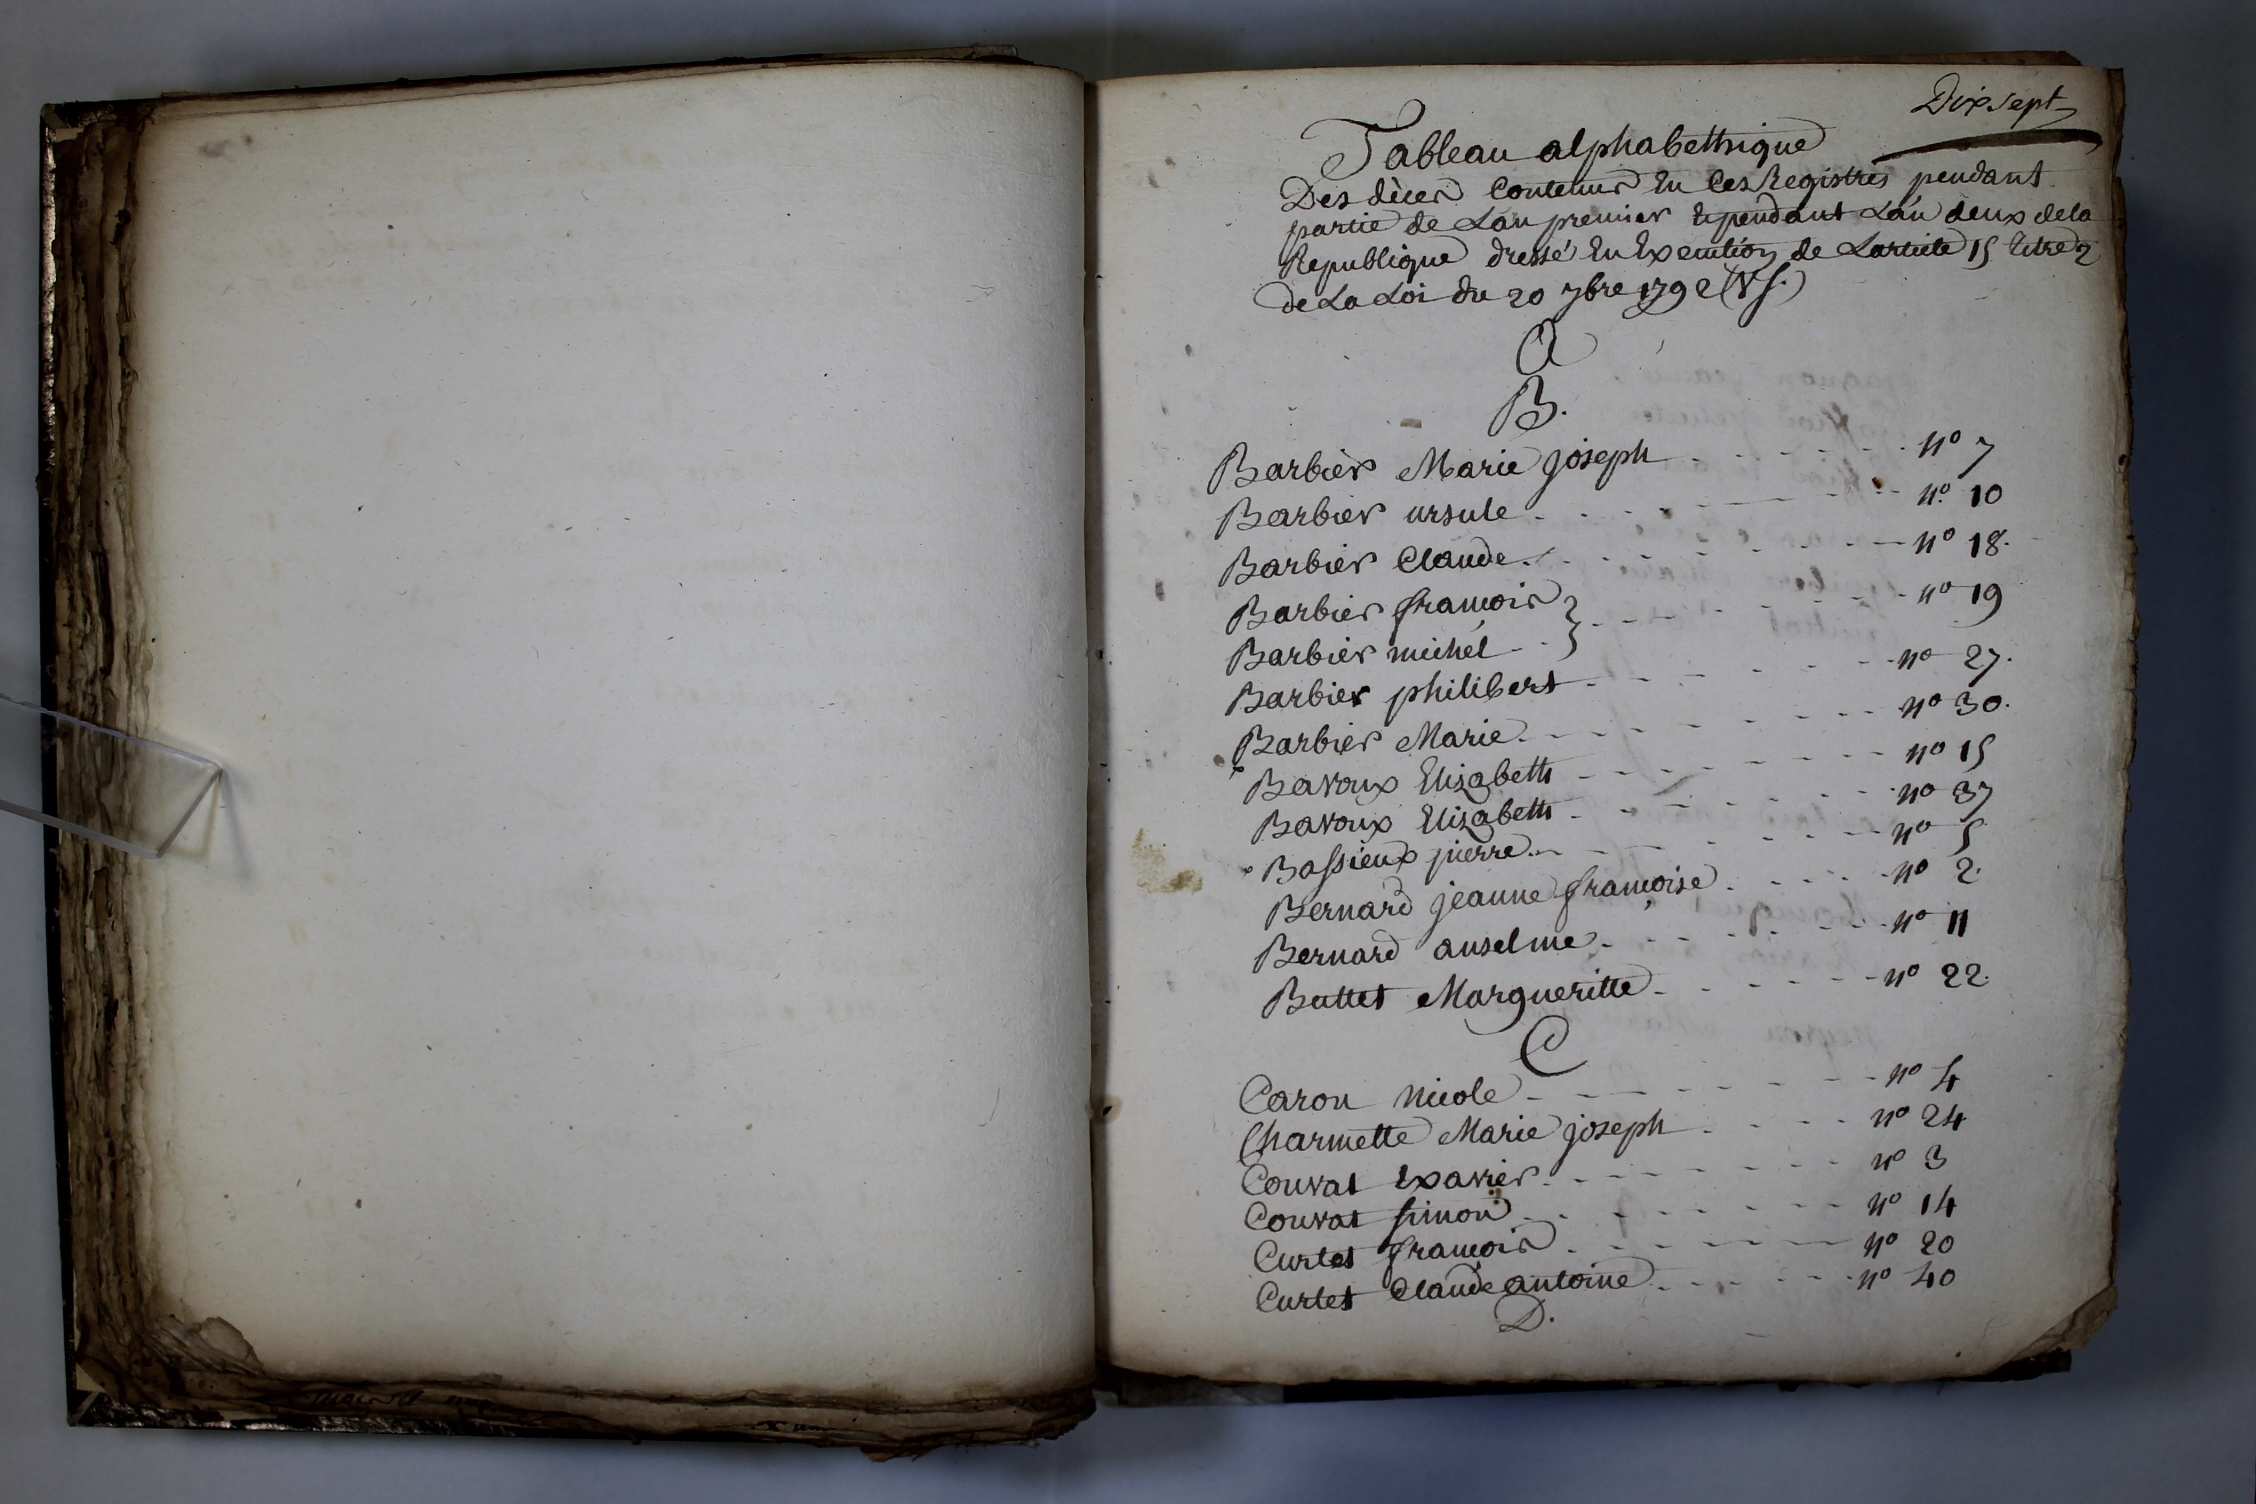 Dix sept
Tableau alphabettrique
Des dèces Contenus En Ces Registres pendant
partie de L'an premier Et pendant L'an deux de la
Republique dressé En Execution de L'article 15 titre 2
de La Loi du 20 7bre 1792 (VS.)
A
B.
Barbier Marie joseph - - - - - n° 7
Barbier ursule - - - - - n° 10
Barbier Claude - - - - - n° 18.
Barbier françois } - - - - - n° 19
Barbier michel - - }
Barbier philibert - - - - - n° 27.
Barbier Marie - - - - - n° 30.
Bavoux Elizabeth - - - - - n° 15
Bavoux Elizabeth - - - - - n° 37
Bassieux pierre - - - - - n° 5
Bernard jeanne françoise - - - - n° 2.
Bernard anselme - - - - - n° 11
Buttet Margueritte - - - - - n° 22.
C
Caron Nicole - - - - - n° 4
Charmette Marie joseph - - - - n° 24
Couvat Exavier - - - - - n° 3
Couvat simon - - - - - n° 14
Curtet françois - - - - - n° 20
Curtet Claude antoine - - - - - n° 40
D.